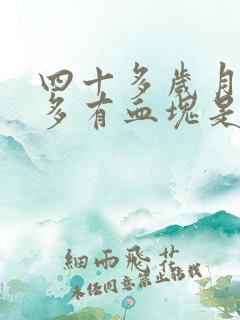 四十多岁月
多有血块是
细雨飞花
未经同意禁止转载